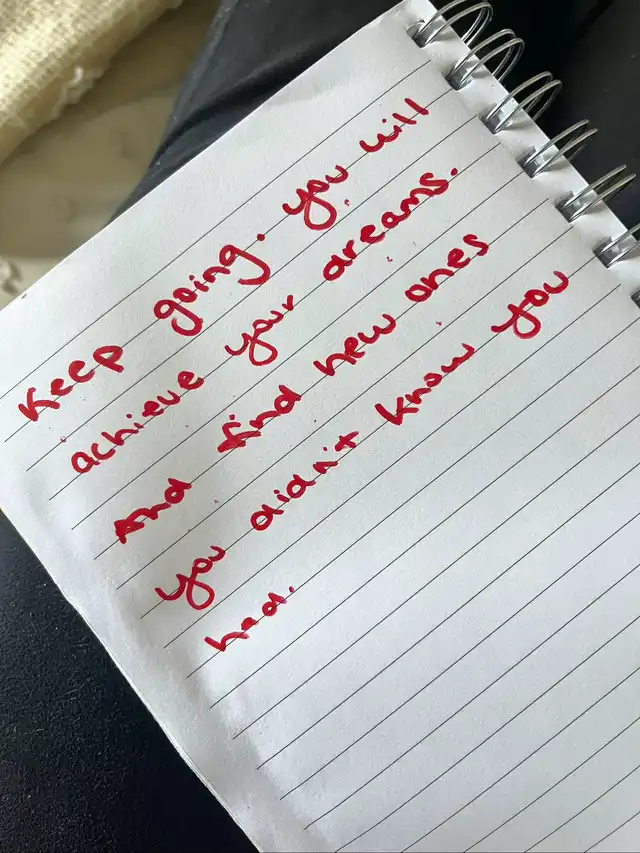 Keep going. you will
achieve your dreams.
And find new ones
you didn't know you
had.